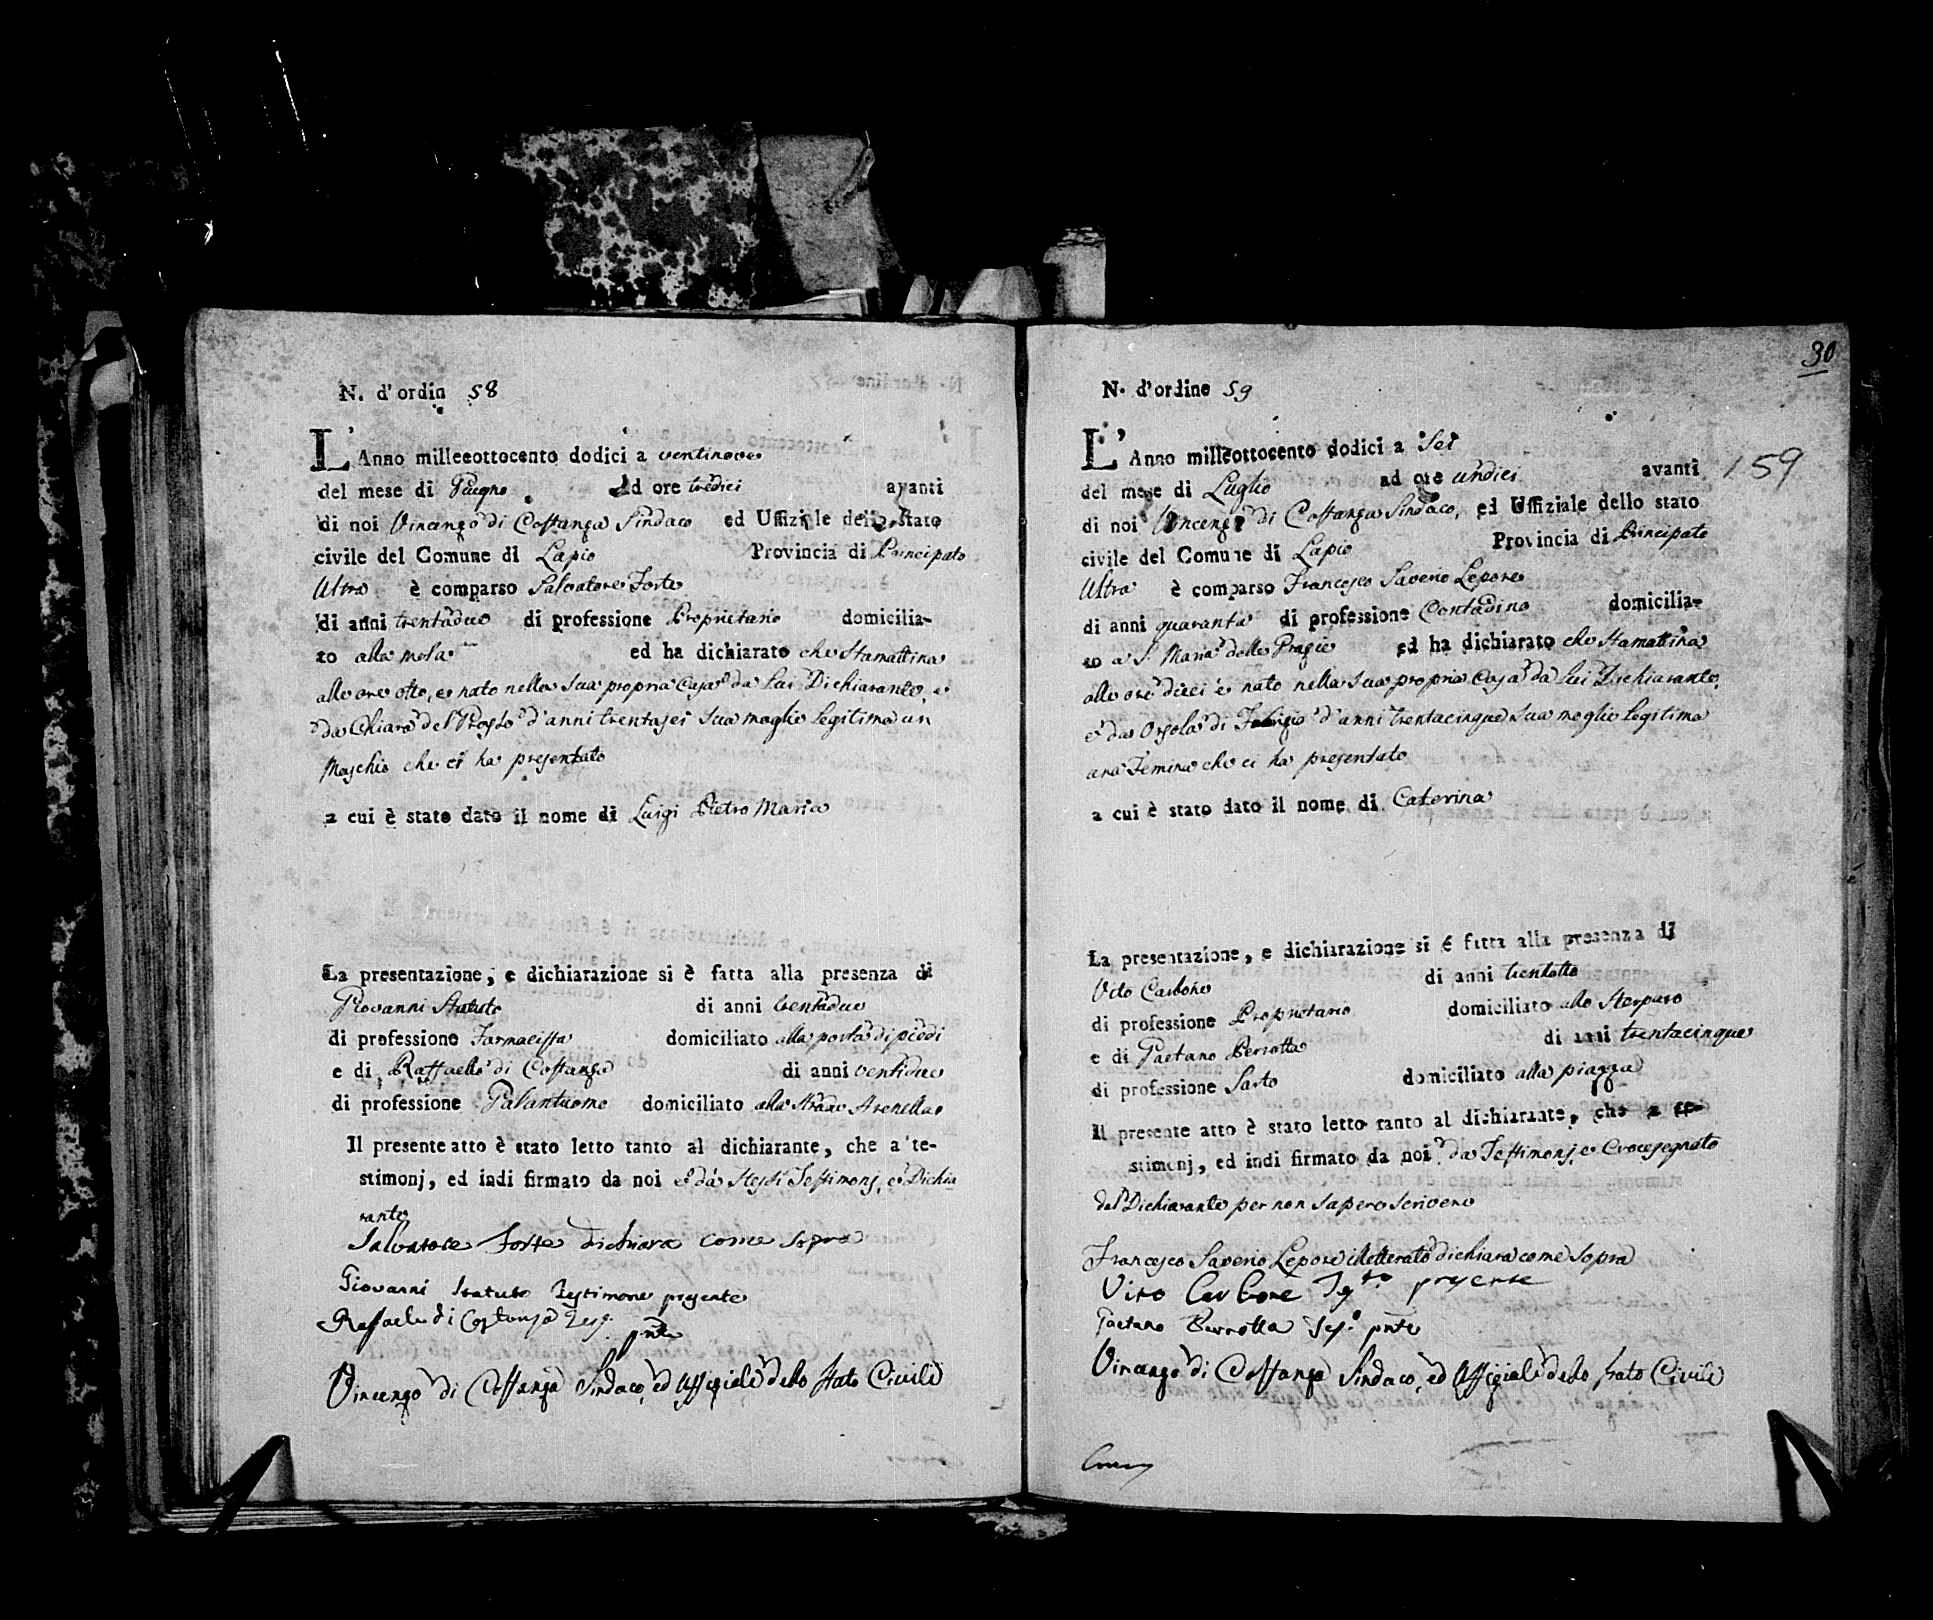 N. d'ordin 58
L'Anno milleottocento dodici a ventinove
del mese di Giugno ad ore tredici avanti
di noi Vincenzo di Costanza Sindaco ed Uffiziale dello stato
civile del Comune di Lapio Provincia di Principato
Ultra è comparso Salvatore Forte
di anni trentadue di professione Proprietario domicilia-
to alla mola ed ha dichiarato che Stamattina
alle ore otto, è nato nella sua propria Casa da lui Dichiarante, e
da Chiara del Prosto d'anni trentasei sua moglie legitima un
Maschio che ci ha presentato
a cui è stato dato il nome di Luigi Pietro Maria
La presentazione, e dichiarazione si è fatta alla presenza di
Giovanni Statuto di anni trentadue
di professione Farmacista domiciliato alla porta di piedi
e di Raffaele di Costanza di anni ventidue
di professione Galantuomo domiciliato alla Strada Arenella
Il presente atto è stato letto tanto al dichiarante, che a te-
stimonj, ed indi firmato da noi e da Stessi Testimonj, e Dichia
rante
Salvatore Forte dichiara come sopra
Giovanni Statuto Testimone presente
Raffaele di Costanza Tess. pnte
Vincenzo di Costanza Sindaco, ed Uffiziale dello Stato Civile
30
N. d'ordine 59
L'Anno milleottocento dodici a Sei
159
del mese di Luglio ad ore undici avanti
di noi Vincenzo di Costanza Sindaco, ed Uffiziale dello stato
civile del Comune di Lapio Provincia di Principato
Ultra è comparso Francesco Saverio Lepore
di anni quaranta di professione Contadino domicilia-
to a S. Maria delle Grazie ed ha dichiarato che Stamattina
alle ore dieci è nato nella sua propria Casa da lui Dichiarante,
e da Orsola di d'anni trentacinque sua moglie legitima
una Femina che ci ha presentato
a cui è stato dato il nome di Caterina
La presentazione, e dichiarazione si è fatta alla presenza di
Vito Carbone di anni trentotto
di professione Proprietario domiciliato allo Sterparo
e di Gaetano Berrotta di anni trentacinque
di professione Sarto domiciliato alla piazza
Il presente atto è stato letto tanto al dichiarante, che a te-
stimonj, ed indi firmato da noi da Testimonj, e Crocesegnato
dal Dichiarante per non sapere scrivere
Francesco Saverio Lepore illetterato dichiara come sopra
Vito Carbone Tesº presente
Gaetano Berrotta Tesº pnte
Vincenzo di Costanza Sindaco, ed Uffiziale dello Stato Civile